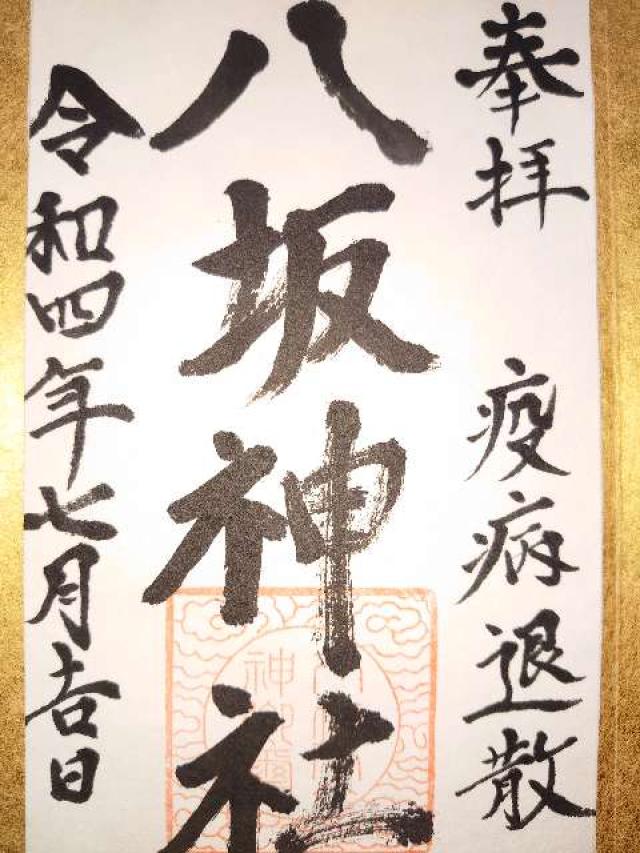 奉拝 疫病退散
八坂神社
令和四年七月吉日